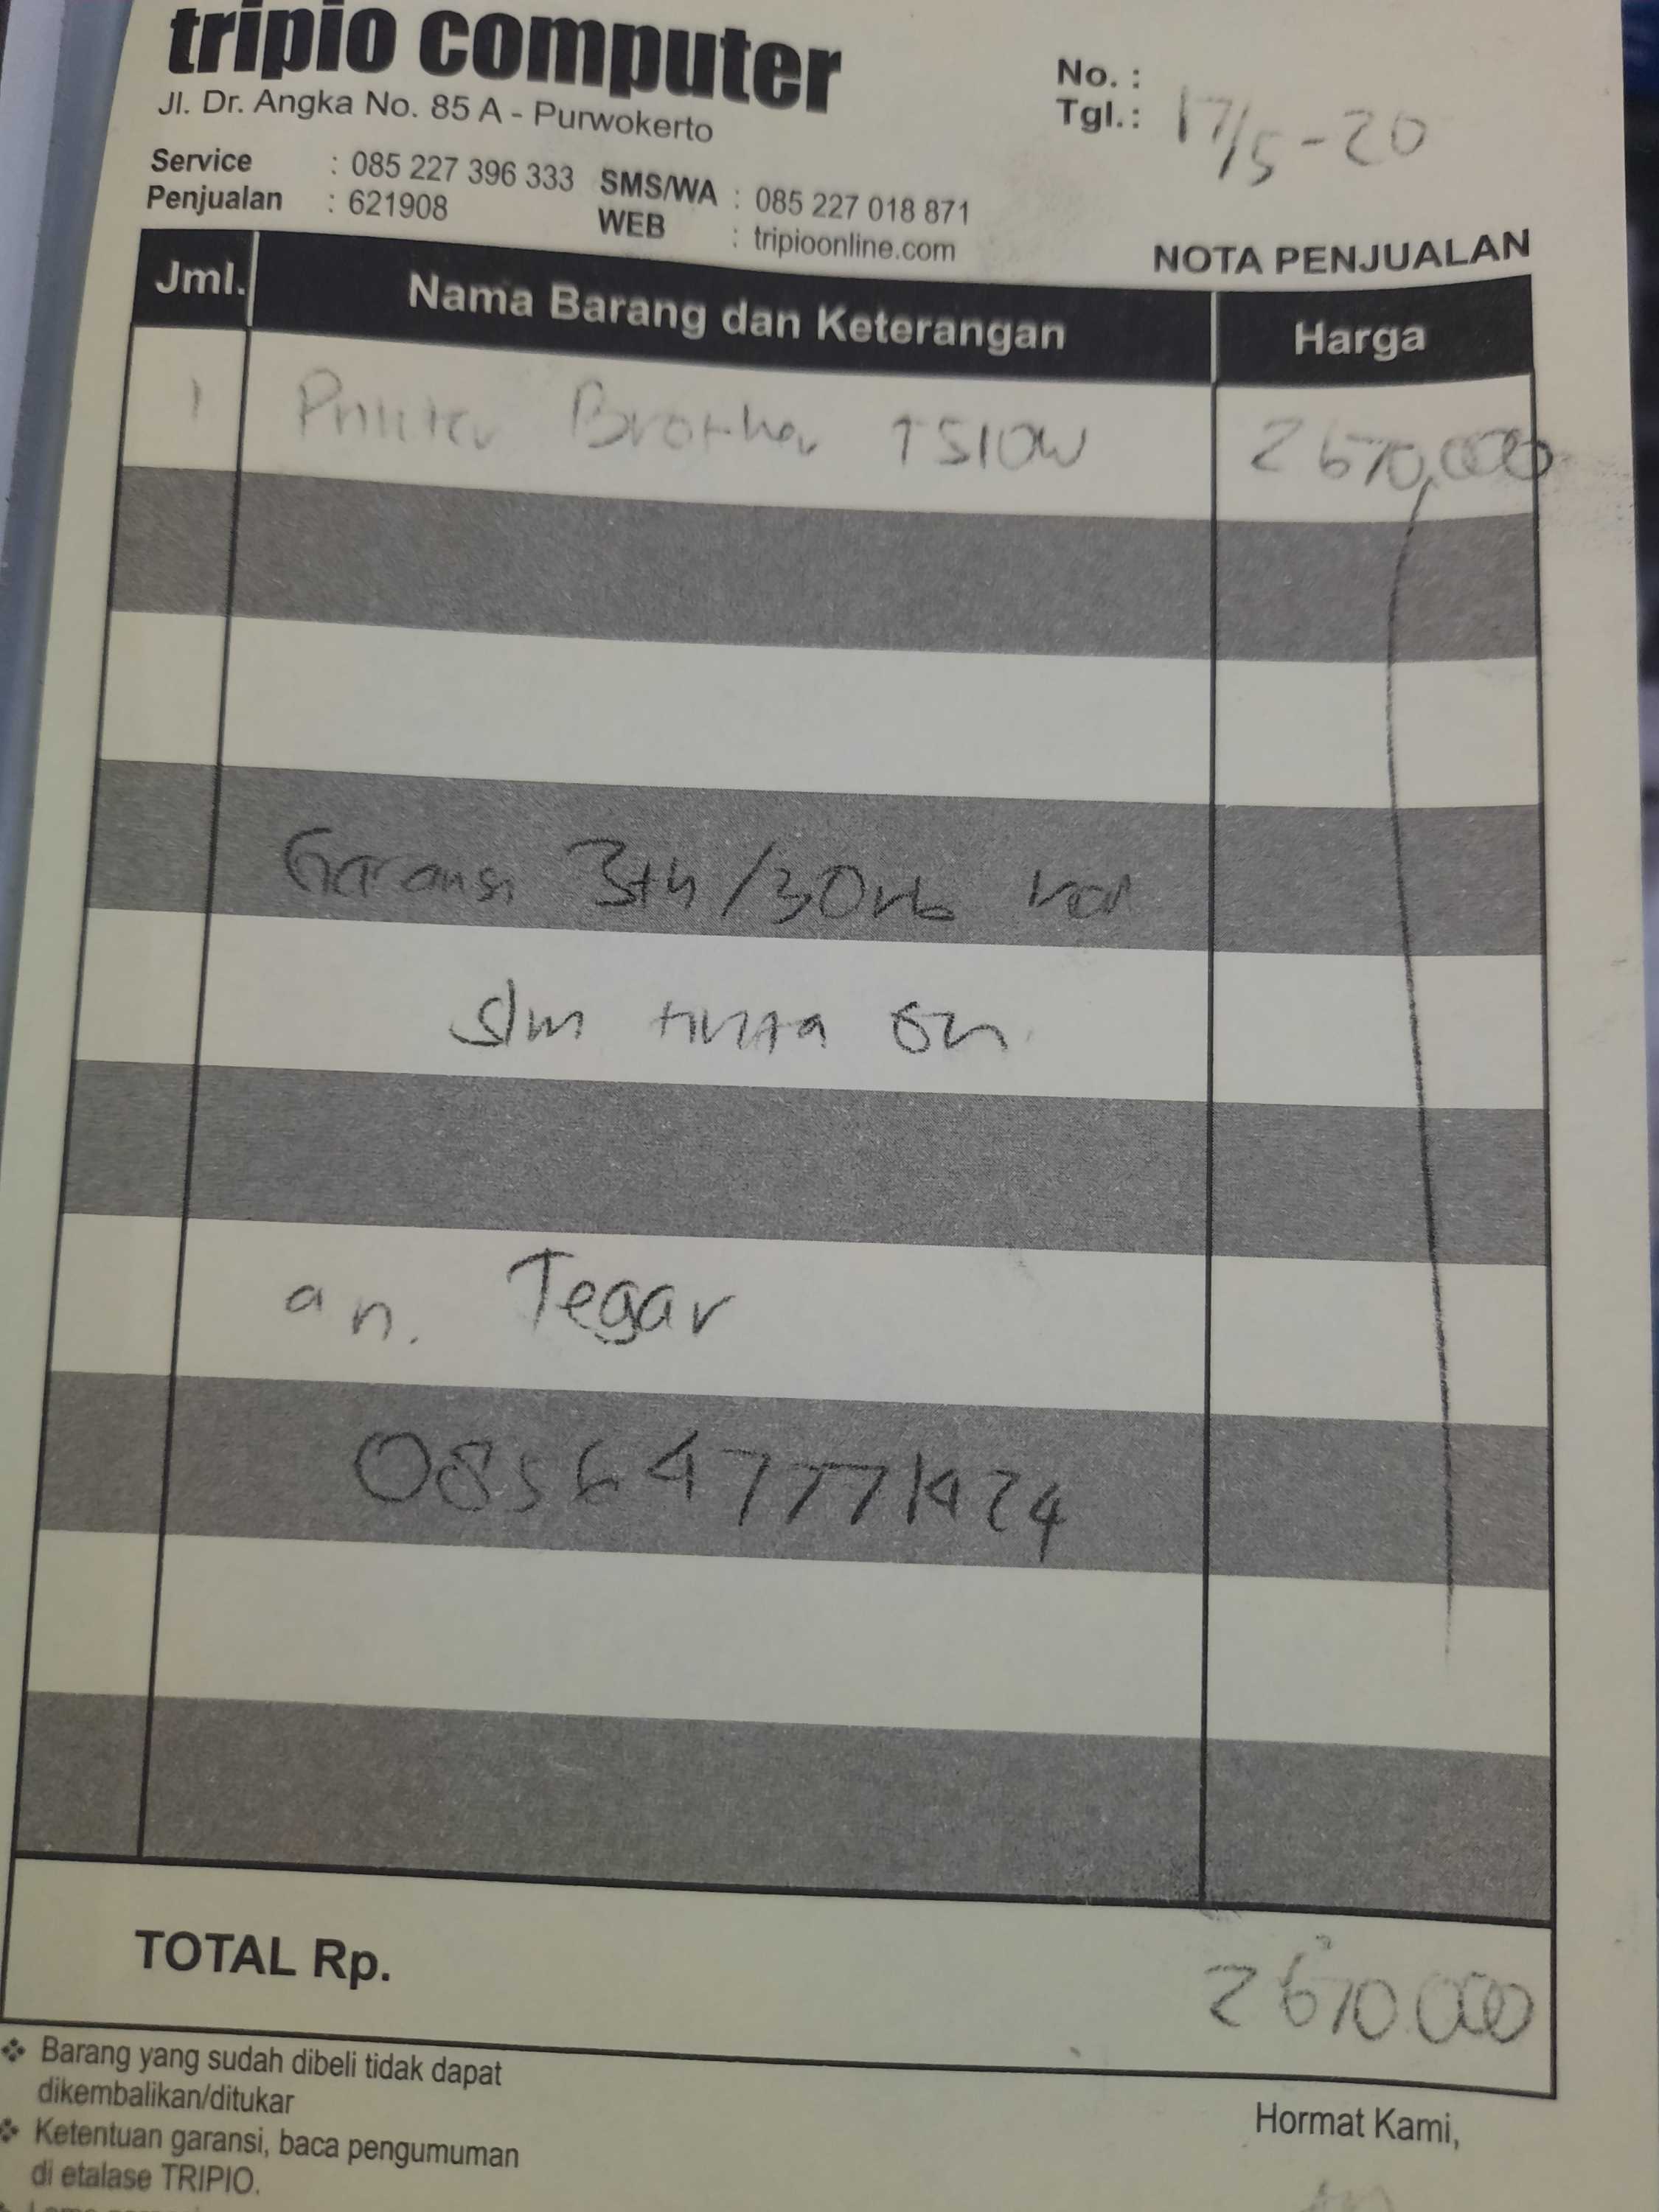 tripio computer
Jl. Dr. Angka No. 85 A - Purwokerto
Service : 085 227 396 333 SMS/WA : 085 227 018 871
Penjualan : 621908 WEB : tripioonline.com
No. :
Tgl. : 17/5-20
NOTA PENJUALAN
Jml. Nama Barang dan Keterangan Harga
1 Printer Brother T510W 2670,000
Garansi 3th/30rb
slm tinta
an. Tegar
TOTAL Rp. 2670000
Barang yang sudah dibeli tidak dapat
dikembalikan/ditukar
Ketentuan garansi, baca pengumuman
di etalase TRIPIO.
Hormat Kami,